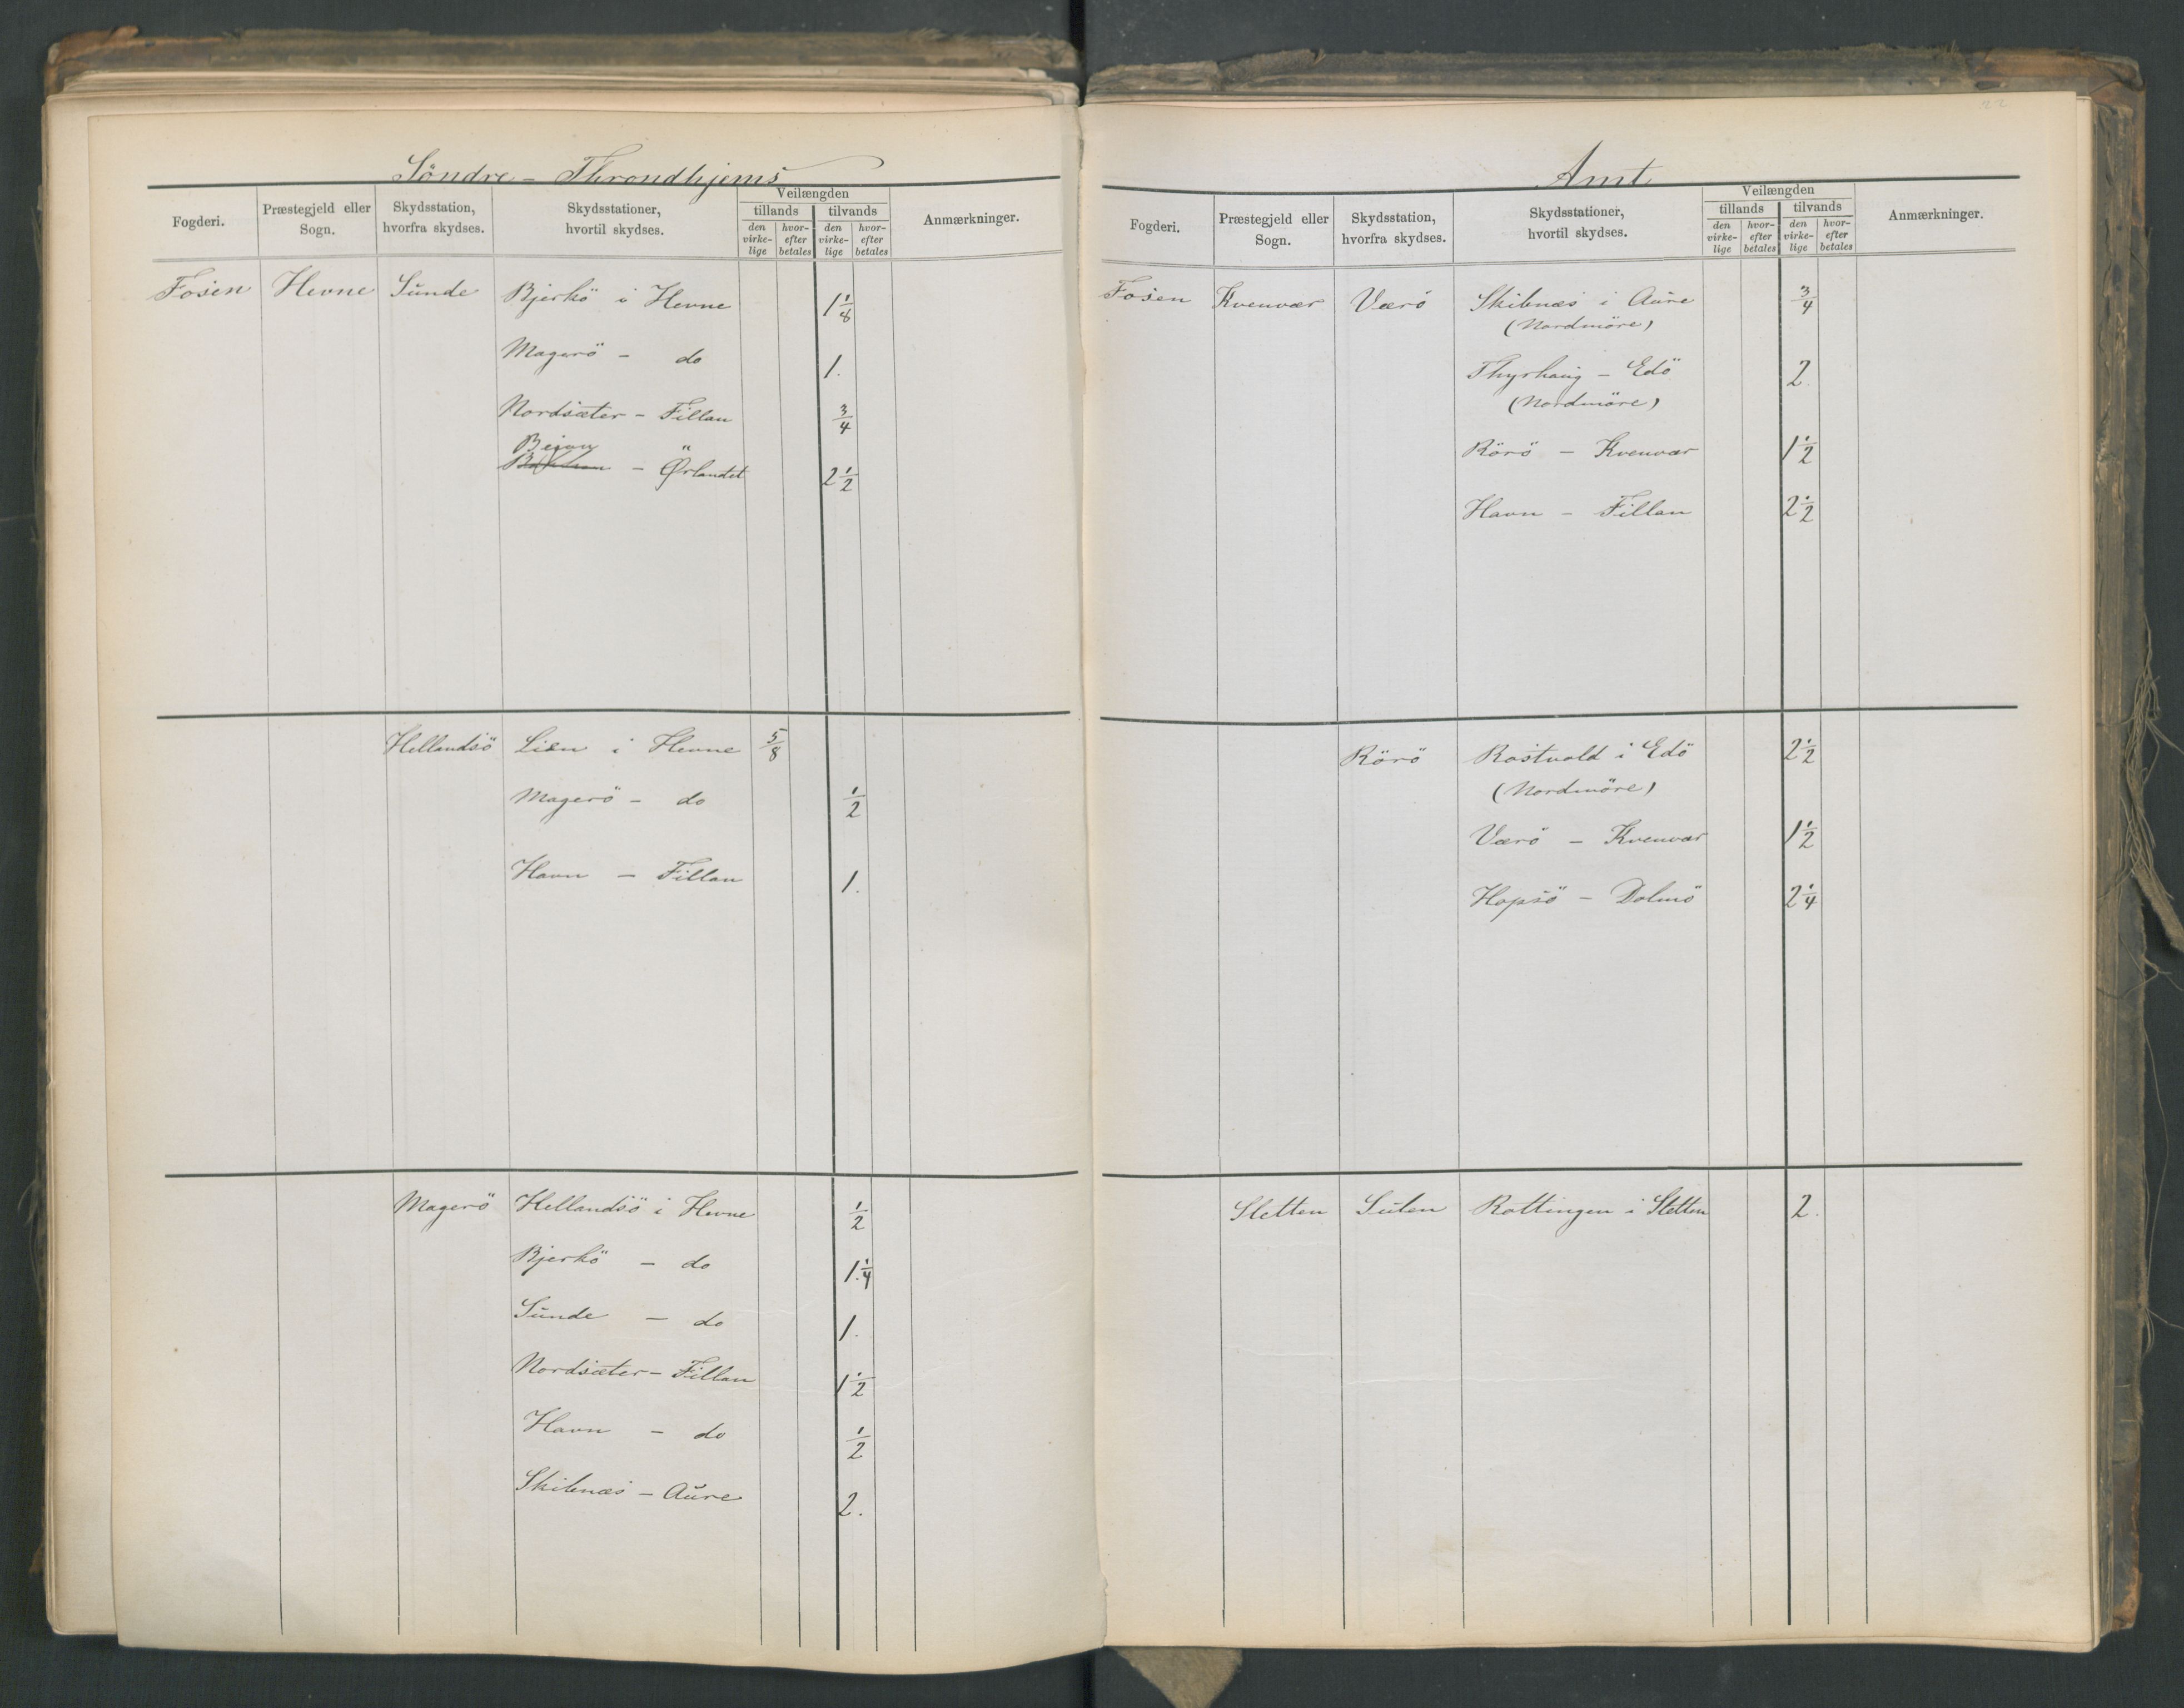 Söndre - Throndhjems
Fogderi. Præstegjeld eller Sogn. Skydsstation, hvorfra skydses. Skydsstationer, hvortil skydses. Veilængden tillands den virkelige hvorefter betales tilvands den virkelige hvorefter betales Anmærkninger.
Fosen Hevne Sunde Bjerkö i Hevne 1 1/8
Magerö - do 1.
Nordsæter - Fillan 3/4
Beian
- Ørlandet 2 1/2
Hellandsö Lien i Hevne 5/8
Magerö - do 1/2
Havn - Fillan 1.
Magerö Hellandsö i Hevne 1/2
Bjerkö - do 1. 1/4
Sunde - do 1.
Nordsæter - Fillan 1 1/2
Havn - do 1/2
Skibnæs - Aure 2.
22
Amt
Fogderi. Præstegjeld eller Sogn. Skydsstation, hvorfra skydses. Skydsstationer, hvortil skydses. Veilængden tillands den virkelige hvorefter betales tilvands den virkelige hvorefter betales Anmærkninger.
Fosen Kvenvær Værö Skibnæs i Aure 3/4
(Nordmöre)
Thyrhaug - Edö 2.
(Nordmöre)
Rörö - Kvenvær 1 1/2
Havn - Fillan 2 1/2
Rörö Rostvold i Edö 2 1/2
(Nordmöre)
Værö - Kvenvær 1 1/2
Hopsö - Dolmö 2 1/4
Sletten Sulen Rottingen i Sletten 2.